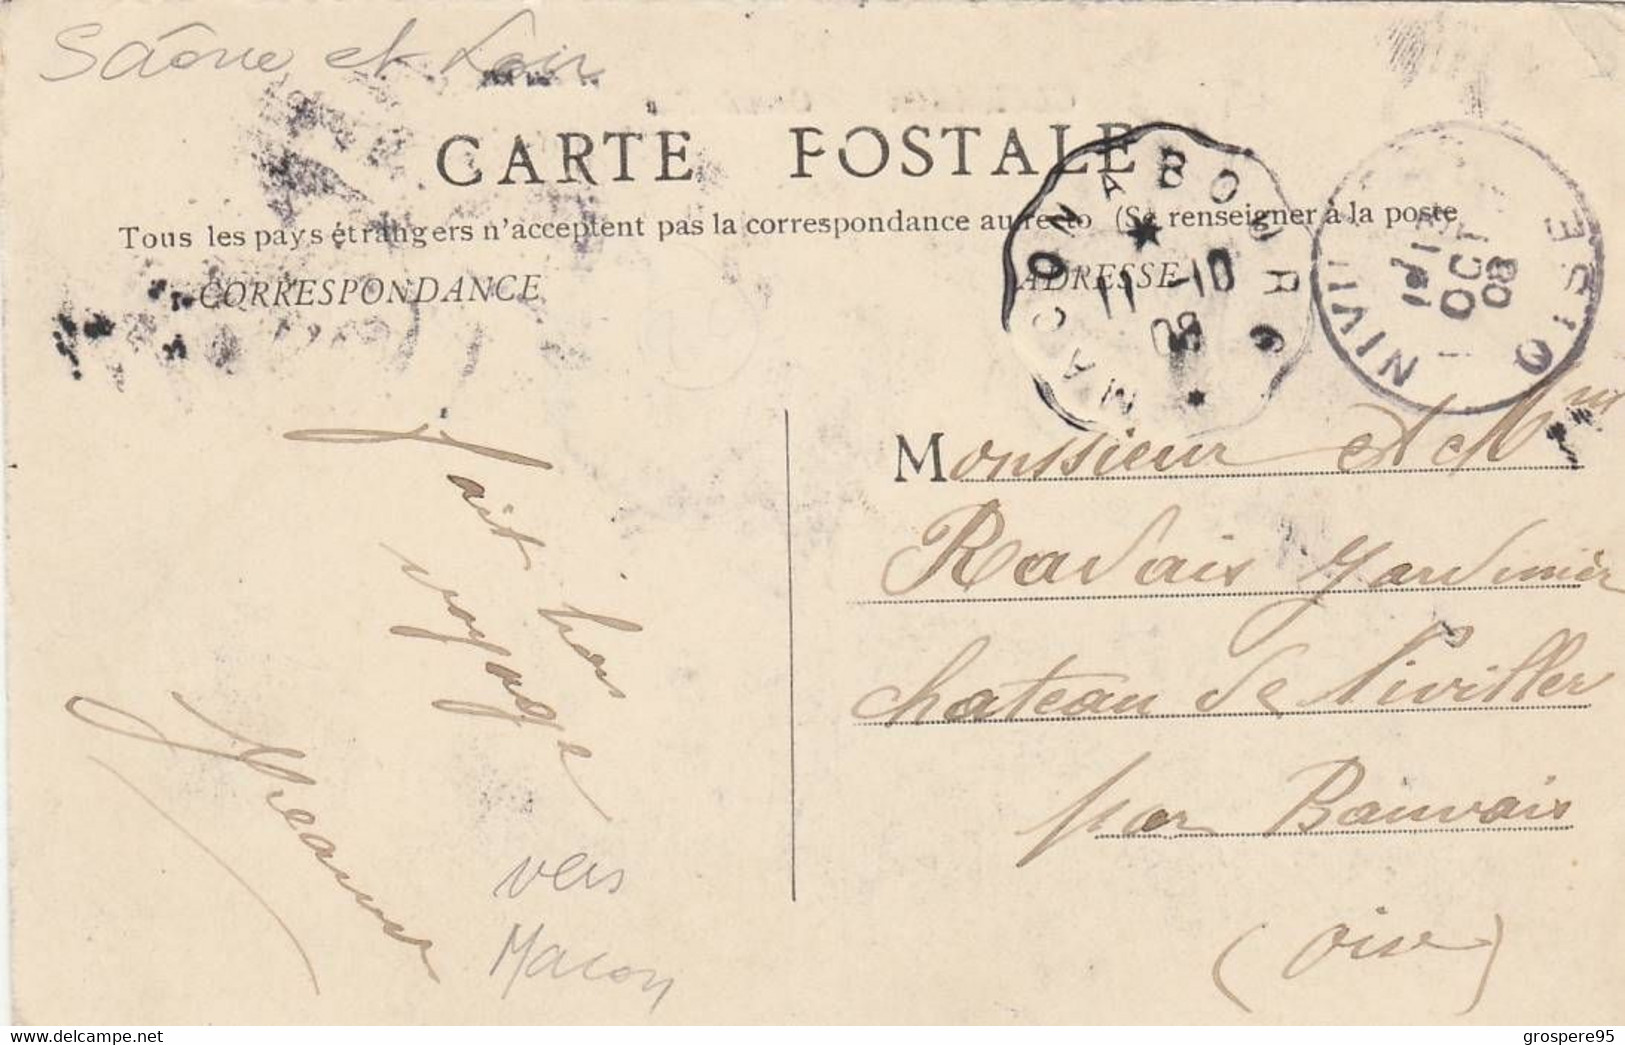 Saône et Loire
CARTE POSTALE
Tous les pays étrangers n'acceptent pas la correspondance au recto (Se renseigner à la poste
CORRESPONDANCE
ADRESSE
MACON A BOURG
11 -10
08
OISE
OCT
08
Monsieur et Mme
Radais Jardinier
chateau de Niviller
par Bauvais
(Oise)
fait bon
voyage
Jeanne
vers
Macon
grospere95